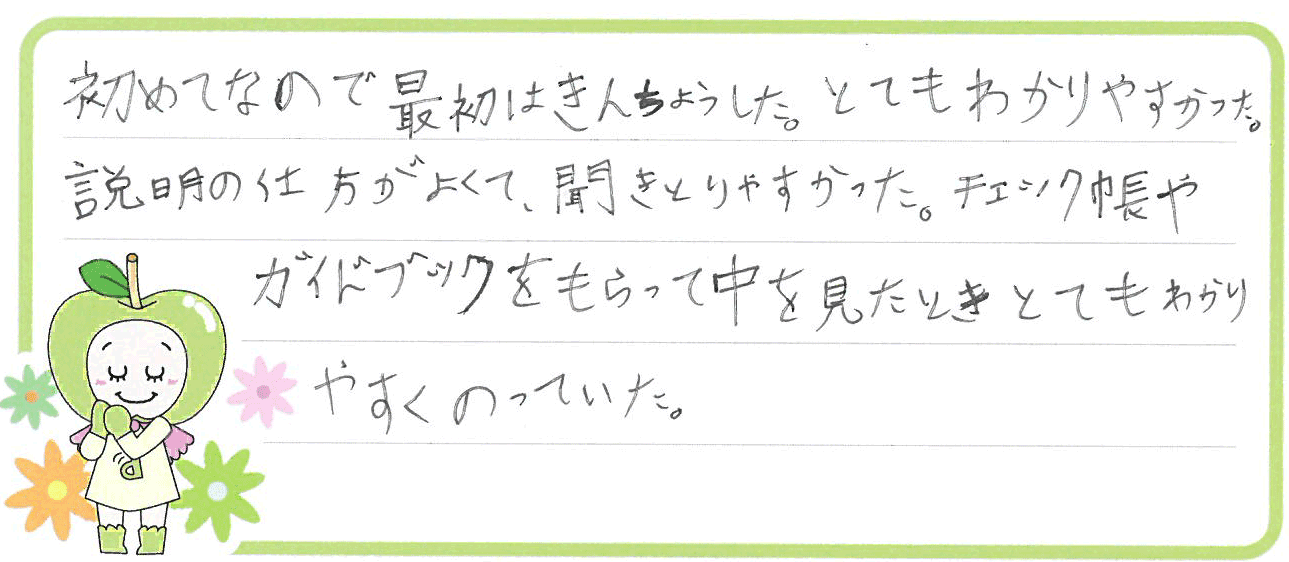 初めてなので最初はきんちょうした。とてもわかりやすかった。
説明の仕方がよくて、聞きとりやすかった。チェック帳や
ガイドブックをもらって中を見たときとてもわかり
やすくのっていた。